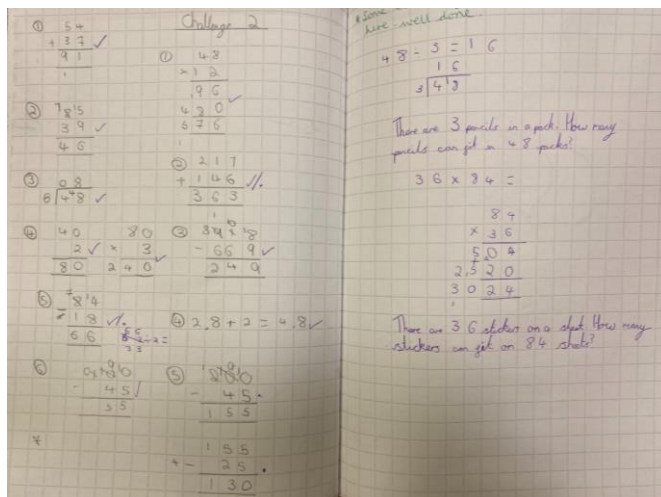 Challenge 2
① 54
+ 37 ✓
91
1
② 7 8 15
39 ✓
46
③ 08
6 4 48 ✓
④ 40
2 ✓
80
80
× 3
240 ✓
⑤ 7 8 14
- 18
66
⑥
- 45
55
① 48
× 12
96
480 ✓
576
1
② 217
+ 146
363
1
③
- 669 ✓
249
④ 2.8 + 2 = 4.8 ✓
⑤
- 45
155
155
- 25
130
here well done
48 ÷ 3 = 16
16
3 4 18
There are 3 pencils in a pack. How many
pencils can fit in 48 packs?
36 × 84 =
84
× 36
504
2,520
3024
1
There are 36 stickers on a sheet. How many
stickers can fit on 84 sheets?